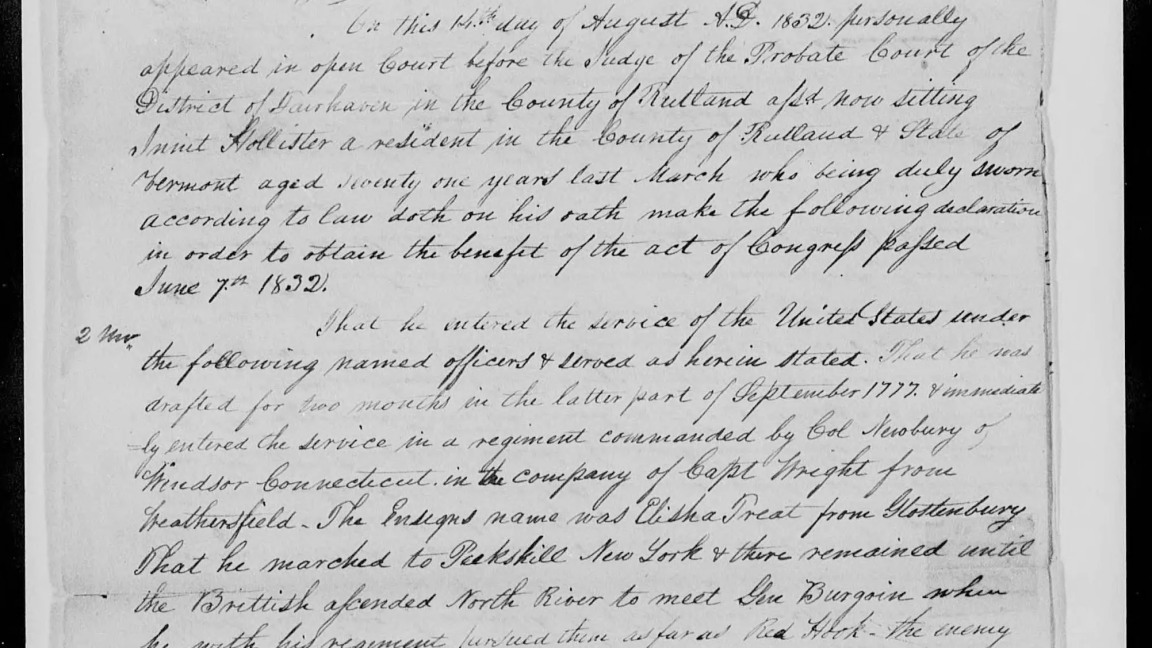 On this 14th day of August A.D. 1832. personally
appeared in open Court before the Judge of the Probate Court of the
District of Fairhaven in the County of Rutland afsd now sitting
Innit Hollister a resident in the County of Rutland & State of
Vermont aged seventy one years last March who being duly sworn
according to law doth on his oath make the following declaration
in order to obtain the benefit of the act of Congress passed
June 7th 1832.
2 Mo.
That he entered the service of the United States under
the following named officers & served as herein stated. That he was
drafted for two months in the latter part of September 1777. & immediate
=ly entered the service in a regiment commanded by Col Newbury of
Windsor Connecticut. in the company of Capt Wright from
Weathersfield - The Ensigns name was Elisha Treat from Glottenbury
That he marched to Peekskill New York & there remained until
the Brittish ascended North River to meet Gen Burgoin when
he with his regiment pursued them as far as Red Hook - the enemy